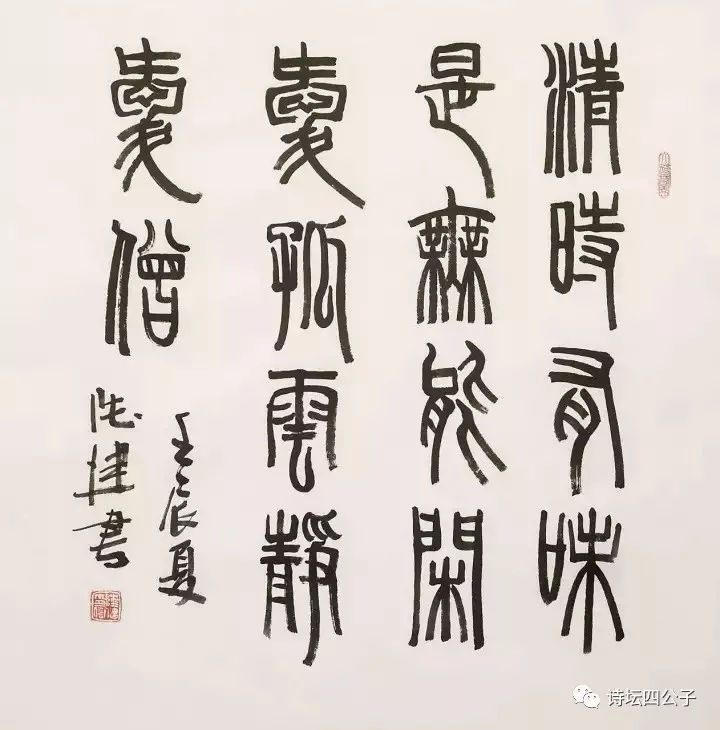 清時有味
是無能閑
愛孤雲靜
愛僧
壬辰夏
陆健書
诗坛四公子